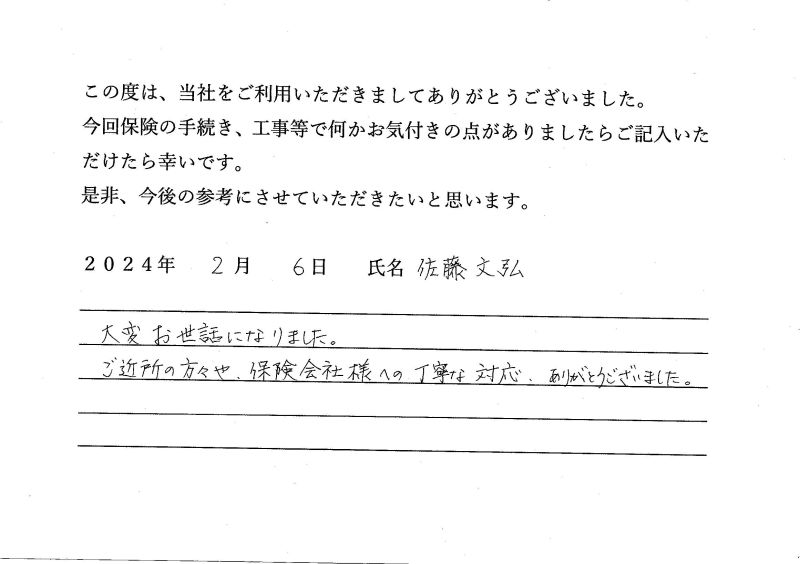 この度は、当社をご利用いただきましてありがとうございました。
今回保険の手続き、工事等で何かお気付きの点がありましたらご記入いた
だけたら幸いです。
是非、今後の参考にさせていただきたいと思います。
2024年 2月 6日 氏名 佐藤文弘
大変お世話になりました。
ご近所の方々や、保険会社様への丁寧な対応、ありがとうございました。